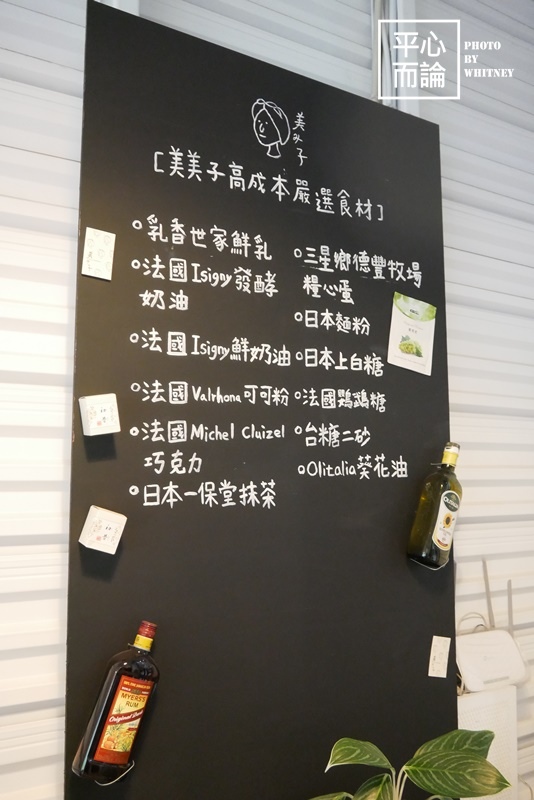 平心
而論
PHOTO
BY
WHITNEY
美み子
[美美子高成本嚴選食材]
乳香世家鮮乳
法國Isigny發酵
奶油
法國Isigny鮮奶油
法國Valrhona可可粉
法國Michel Cluizel
巧克力
日本一保堂抹茶
三星鄉德豐牧場
糧心蛋
日本麵粉
日本上白糖
法國鸚鵡糖
台糖二砂
Olitalia葵花油
MYERS'S
RUM
Original Dark